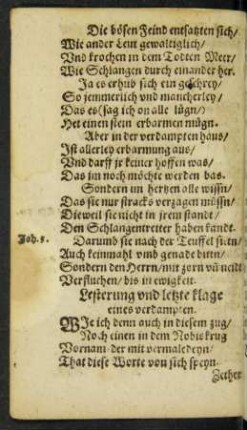 Die bösen Feind entsatzten sich/
Wie ander Leut gewaltiglich/
Vnd krochen in dem Todten Meer/
Wie Schlangen durch einander her.
Ja es erhub sich ein geschrey/
So jemmerlich vnd mancherley/
Das es (sag ich on alle lügn/)
Het einen stein erbarmen mügn.
Aber in der verdampten haus/
Ist allerley erbarmung aus/
Vnd darff jr keiner hoffen was/
Das im noch möchte werden bas.
Sondern im hertzen alle wissn/
Das sie nur stracks verzagen müssn/
Dieweil sie nicht in jrem standt/
Den Schlangentretter haben kandt.
Joh. 8.
Darumb sie nach der Teuffel sittn/
Auch keinmahl vmb genade bittn/
Sondern den Herrn/mit zorn vñ neidt
Verfluchen/bis in ewigkeit.
Lesterung vnd letzte klage
eines verdampten.
WJe ich denn auch in diesem zug/
Noch einen in dem Nobiskrug
Vornam/der mit vermaledeyn/
That diese Worte von sich speyn.
Zether